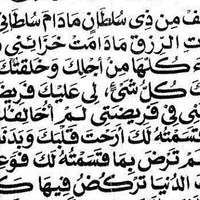 ـفْ مِنْ ذِي سُلْطَانٍ مَادَامَ سُلْطَانِي
ـتِ الرِّزْقِ مَادَامَتْ خَزَائِنِي
كُلَّهَا مِنْ أَجْلِكَ وَخَلَقْتُكَ
ـكَ كُلَّ شَيْءٍ، لِي عَلَيْكَ فَرِيضَـ
ـنِي فِي فَرِيضَتِي لَمْ أُخَالِفْـ
قَسَمْتُهُ لَكَ أَرَحْتَ قَلْبَكَ وَبَدَنَـ
ـمْ تَرْضَ بِمَا قَسَمْتُهُ لَكَ فَوَعِـ
ـكَ الدُّنْيَا تَرْكُضُ فِيهَا كَـ